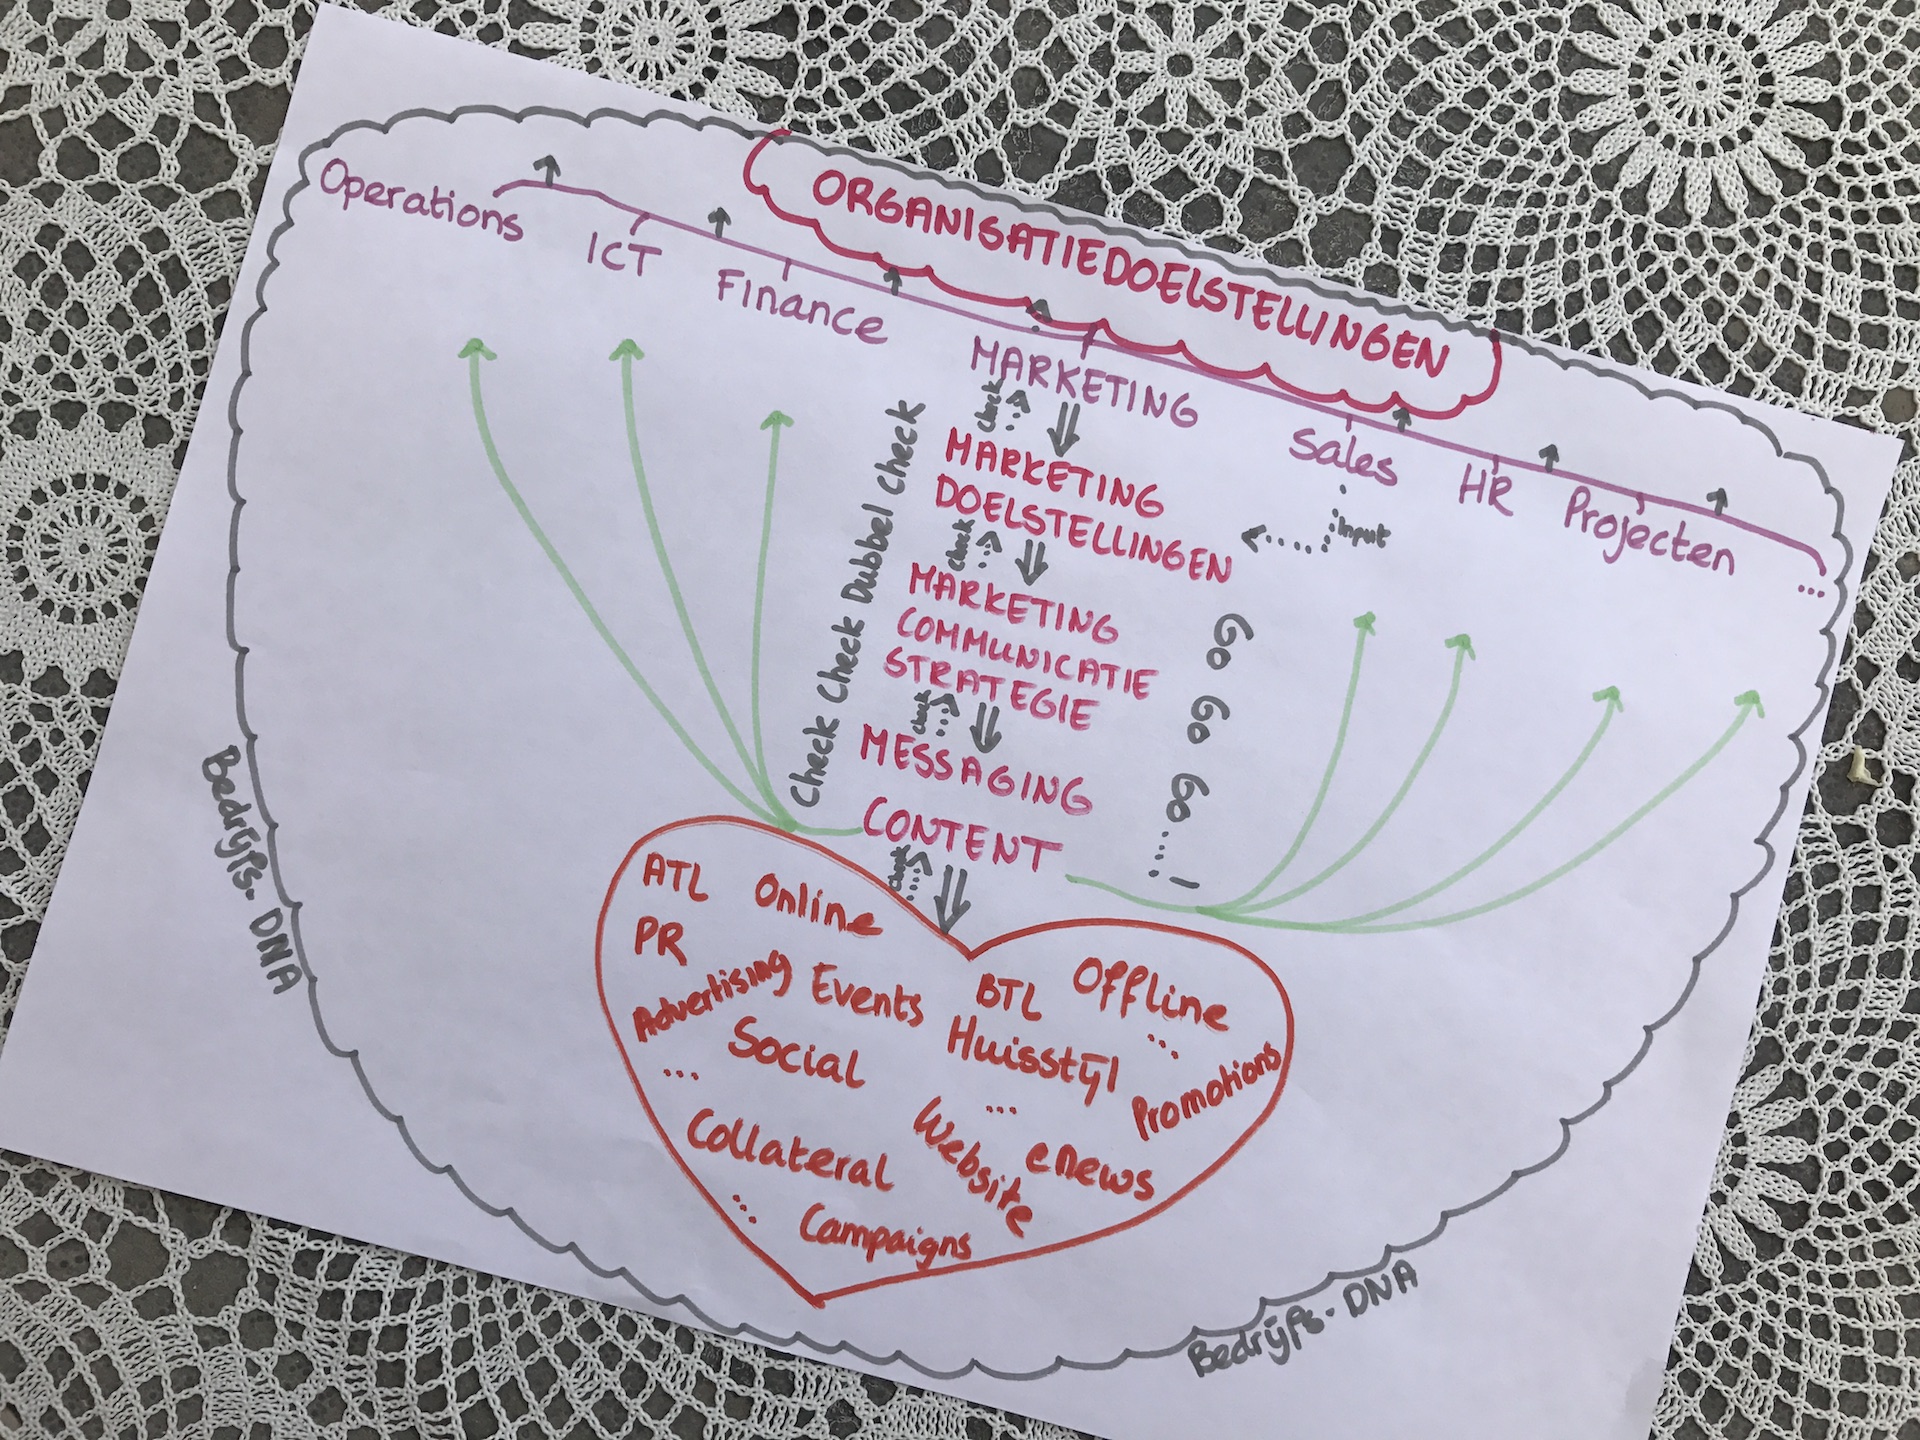 ORGANISATIEDOELSTELLINGEN
Operations
ICT
Finance
MARKETING
Sales
HR
Projecten
...
check
MARKETING
DOELSTELLINGEN
input
check
MARKETING
COMMUNICATIE
STRATEGIE
check
MESSAGING
CONTENT
check
Check Check Dubbel Check
Go Go Go ....!
ATL
Online
PR
Advertising
Events
Social
...
BTL
Offline
...
Huisstijl
...
Promotions
Collateral
...
Website
enews
Campaigns
Bedrijfs-DNA
Bedrijfs-DNA